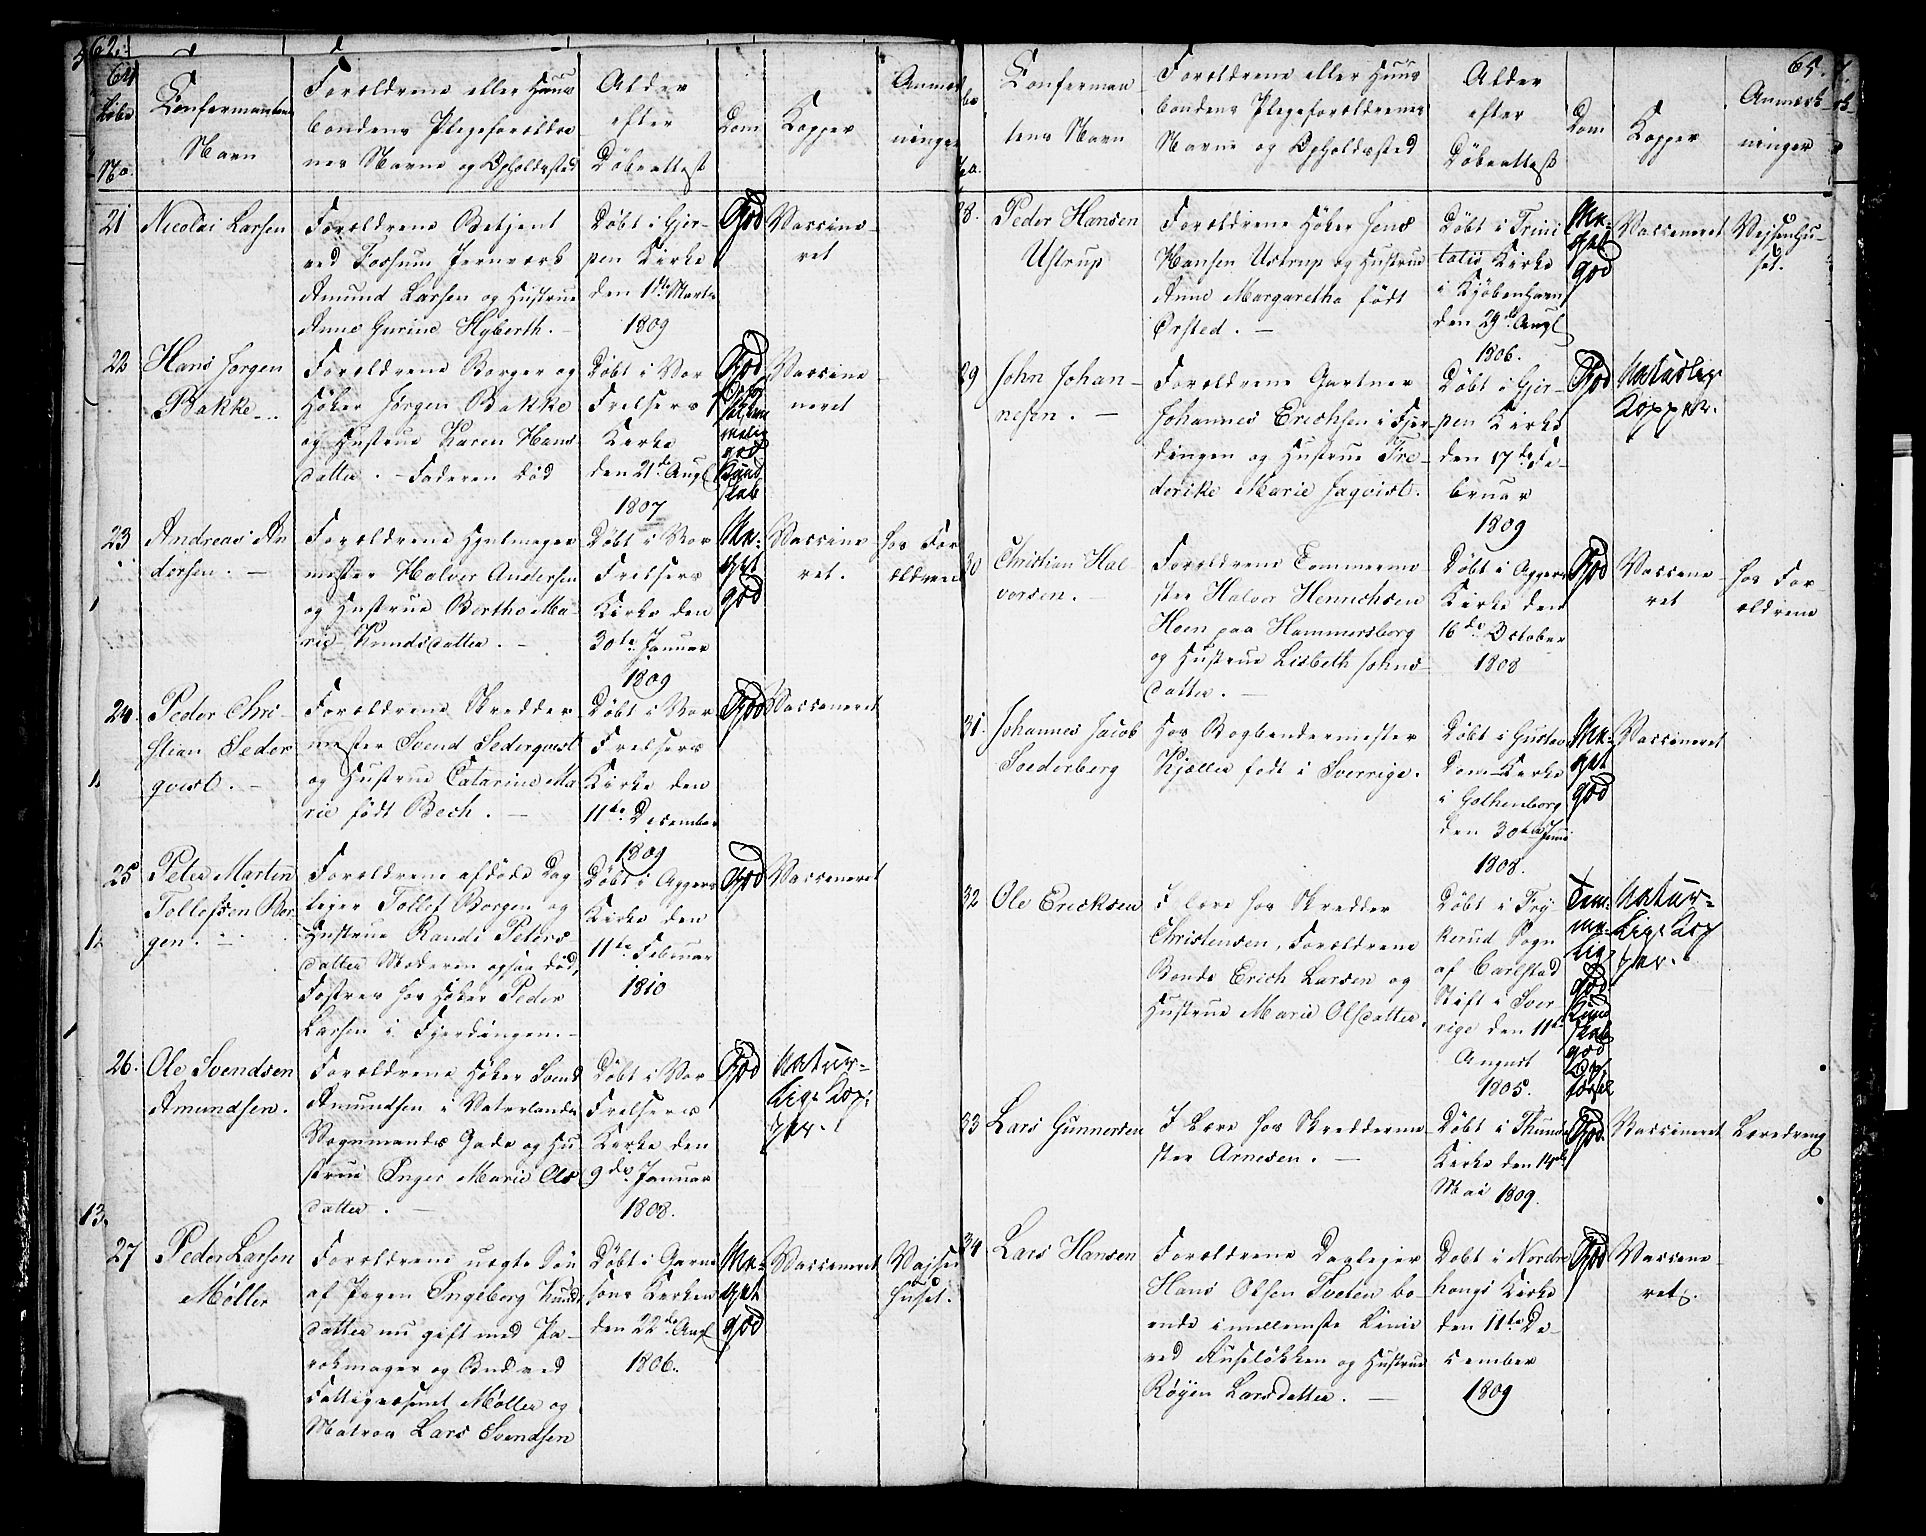 62.
64
Løbe
No.
Confermantens
Navn
Forældrene eller Huus
bondens Plegeforældre
nes Navne og Opholdssted
Alder
efter
Døbeattest
Dom
Kopper
Anmærk
ninger
21 Nicolai Larsen
Forældrene Betjent
ved Fossum Jernværk
Amund Larsen og Hustrue
Anne Gurine Hyberth. -
Døbt i Gjer-
pen Kirke
den 1ste Martz
1809
God
Vaccine-
ret
22 Hans Jørgen
Bakke. -
Forældrene Borger og
Høker Jørgen Bakke
og Hustrue Karen Hans
datter. - Faderen død
Døbt i Vor
Frelsers
Kirke
den 21de Augl
1807
God
melig
god
Kund
skab
Vaccine
neret
23 Andreas An
dersen. -
Forældrene Hjulmager
mester Halvor Andersen
og Hustrue Berthe Ma-
rie Knudsdatter. -
Døbt i Vor
Frelsers
Kirke den
30te Januar
1809
Me-
get
god
Vaccine
ret.
hos For
ældrene
24. Peder Chri-
stian Seder
qvist. -
Forældrene Skredder
mester Svend Sederqvist
og Hustrue Catarine Ma
rie født Bech. -
Døbt i Vor
Frelsers
Kirke den
11te December
1809
God
Vaccineret
25 Peter Martin
Tollefsen Bor-
gen. -
Forældrene afdøde Dag
leier Tollef Borgen og
Hustrue Rande Peters
datter Moderen ogsaa død,
Fostres hos Høker Peder
Larsen i Fjerdingen. -
Døbt i Aggers
Kirke den
11te Februar
1810
God
Vaccineret
26. Ole Svendsen
Amundsen.
Forældrene Høker Svend
Amundsen i Vaterlands
Vognmands Gade og Hu
strue Inger Marie Ols
datter. -
Døbt i Vor
Frelsers
Kirke den
9de Januar
1808.
God
Natur-
lige Kop-
per.
13.
27 Peder Larsen
Møller
Forældrene uægte Søn
af Pigen Ingeborg Knuds
datter nu gift med Pa-
rokmager og Bud ved
Fattigvæsenet Møller og
Matros Lars Svendsen
Døbt i Garni
sons Kirken
den 22de Augl
1806.
Me-
get
god
Vaccineret
Vajsen
huset.
65.
Conferman
tens Navn
Forældrene eller Huus
bondens Plegeforældrenes
Navne og Opholdssted
Alder
efter
Døbeattest
Dom
Kopper
Anmærk-
ninger
28. Peder Hansen
Ustrup
Forældrene Høker Jens
Hansen Ustrup og Hustrue
Anne Margaretha født
Ørsted. -
Døbt i Trini
tatis Kirke
i Kjøbenhavn
den 29de Augl
1806.
Me-
get
god
Vaccineret
Vejsenhu-
set.
29 John Johan-
nesen. -
Forældrene Gartner
Johannes Erichsen i Fjer-
dingen og Hustrue Fre-
derike Marie Jaqvist.
Døbt i Gjer-
pen Kirke
den 17de Fe-
bruar
1809
God
Naturlige
Kopper.
30 Christian Hal
vorsen. -
Forældrene Tommerme
ster Halvor Henrichsen
Hoen paa Hammersborg
og Hustrue Lisbeth Johns-
datter. -
Døbt i Aggers
Kirke den
16de October
1808
God
Vaccine-
ret
hos For
ældrene
31. Johannes Jacob
Soederberg
Hos Bogbendermester
Kjæller født i Sverrige.
Døbt i Gustav
Dom-Kirke
i Gothenborg
den 30te Juni
1808.
Me-
get
god
Vaccineret
32 Ole Ericksen
I Lære hos Skredder
Christensen, Forældrene
Bonde Erich Larsen og
Hustrue Marie Olsdatter.
Døbt i Fry
kerud Sogn
af Carlstad
Stift i Sver
rige den 11te
August
1805.
Tem-
me-
lig
god
Kund
skab
god
Opf
førsel
Natur-
lige Kop
per.
33 Lars Gunnersen
I Lære hos Skredderme-
ster Arnesen. -
Døbt i Thunds
Kirke den 14de
Mai 1809.
God.
Vaccineret
Læredreng
34 Lars Hansen
Forældrene Dagleier
Hans Olsen Tveten bo-
ende i mellemste Linie
ved Ruseløkken og Hustrue
Røyen Larsdatter. -
Døbt i Nordre
hougs Kirke
den 11te De-
cember
1809
God
Vaccine-
ret.